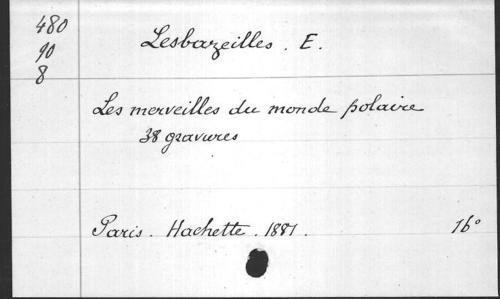 480
90
8
Lesbazeilles. E.
Les merveilles du monde polaire
38 gravures
Paris. Hachette. 1881. 16°